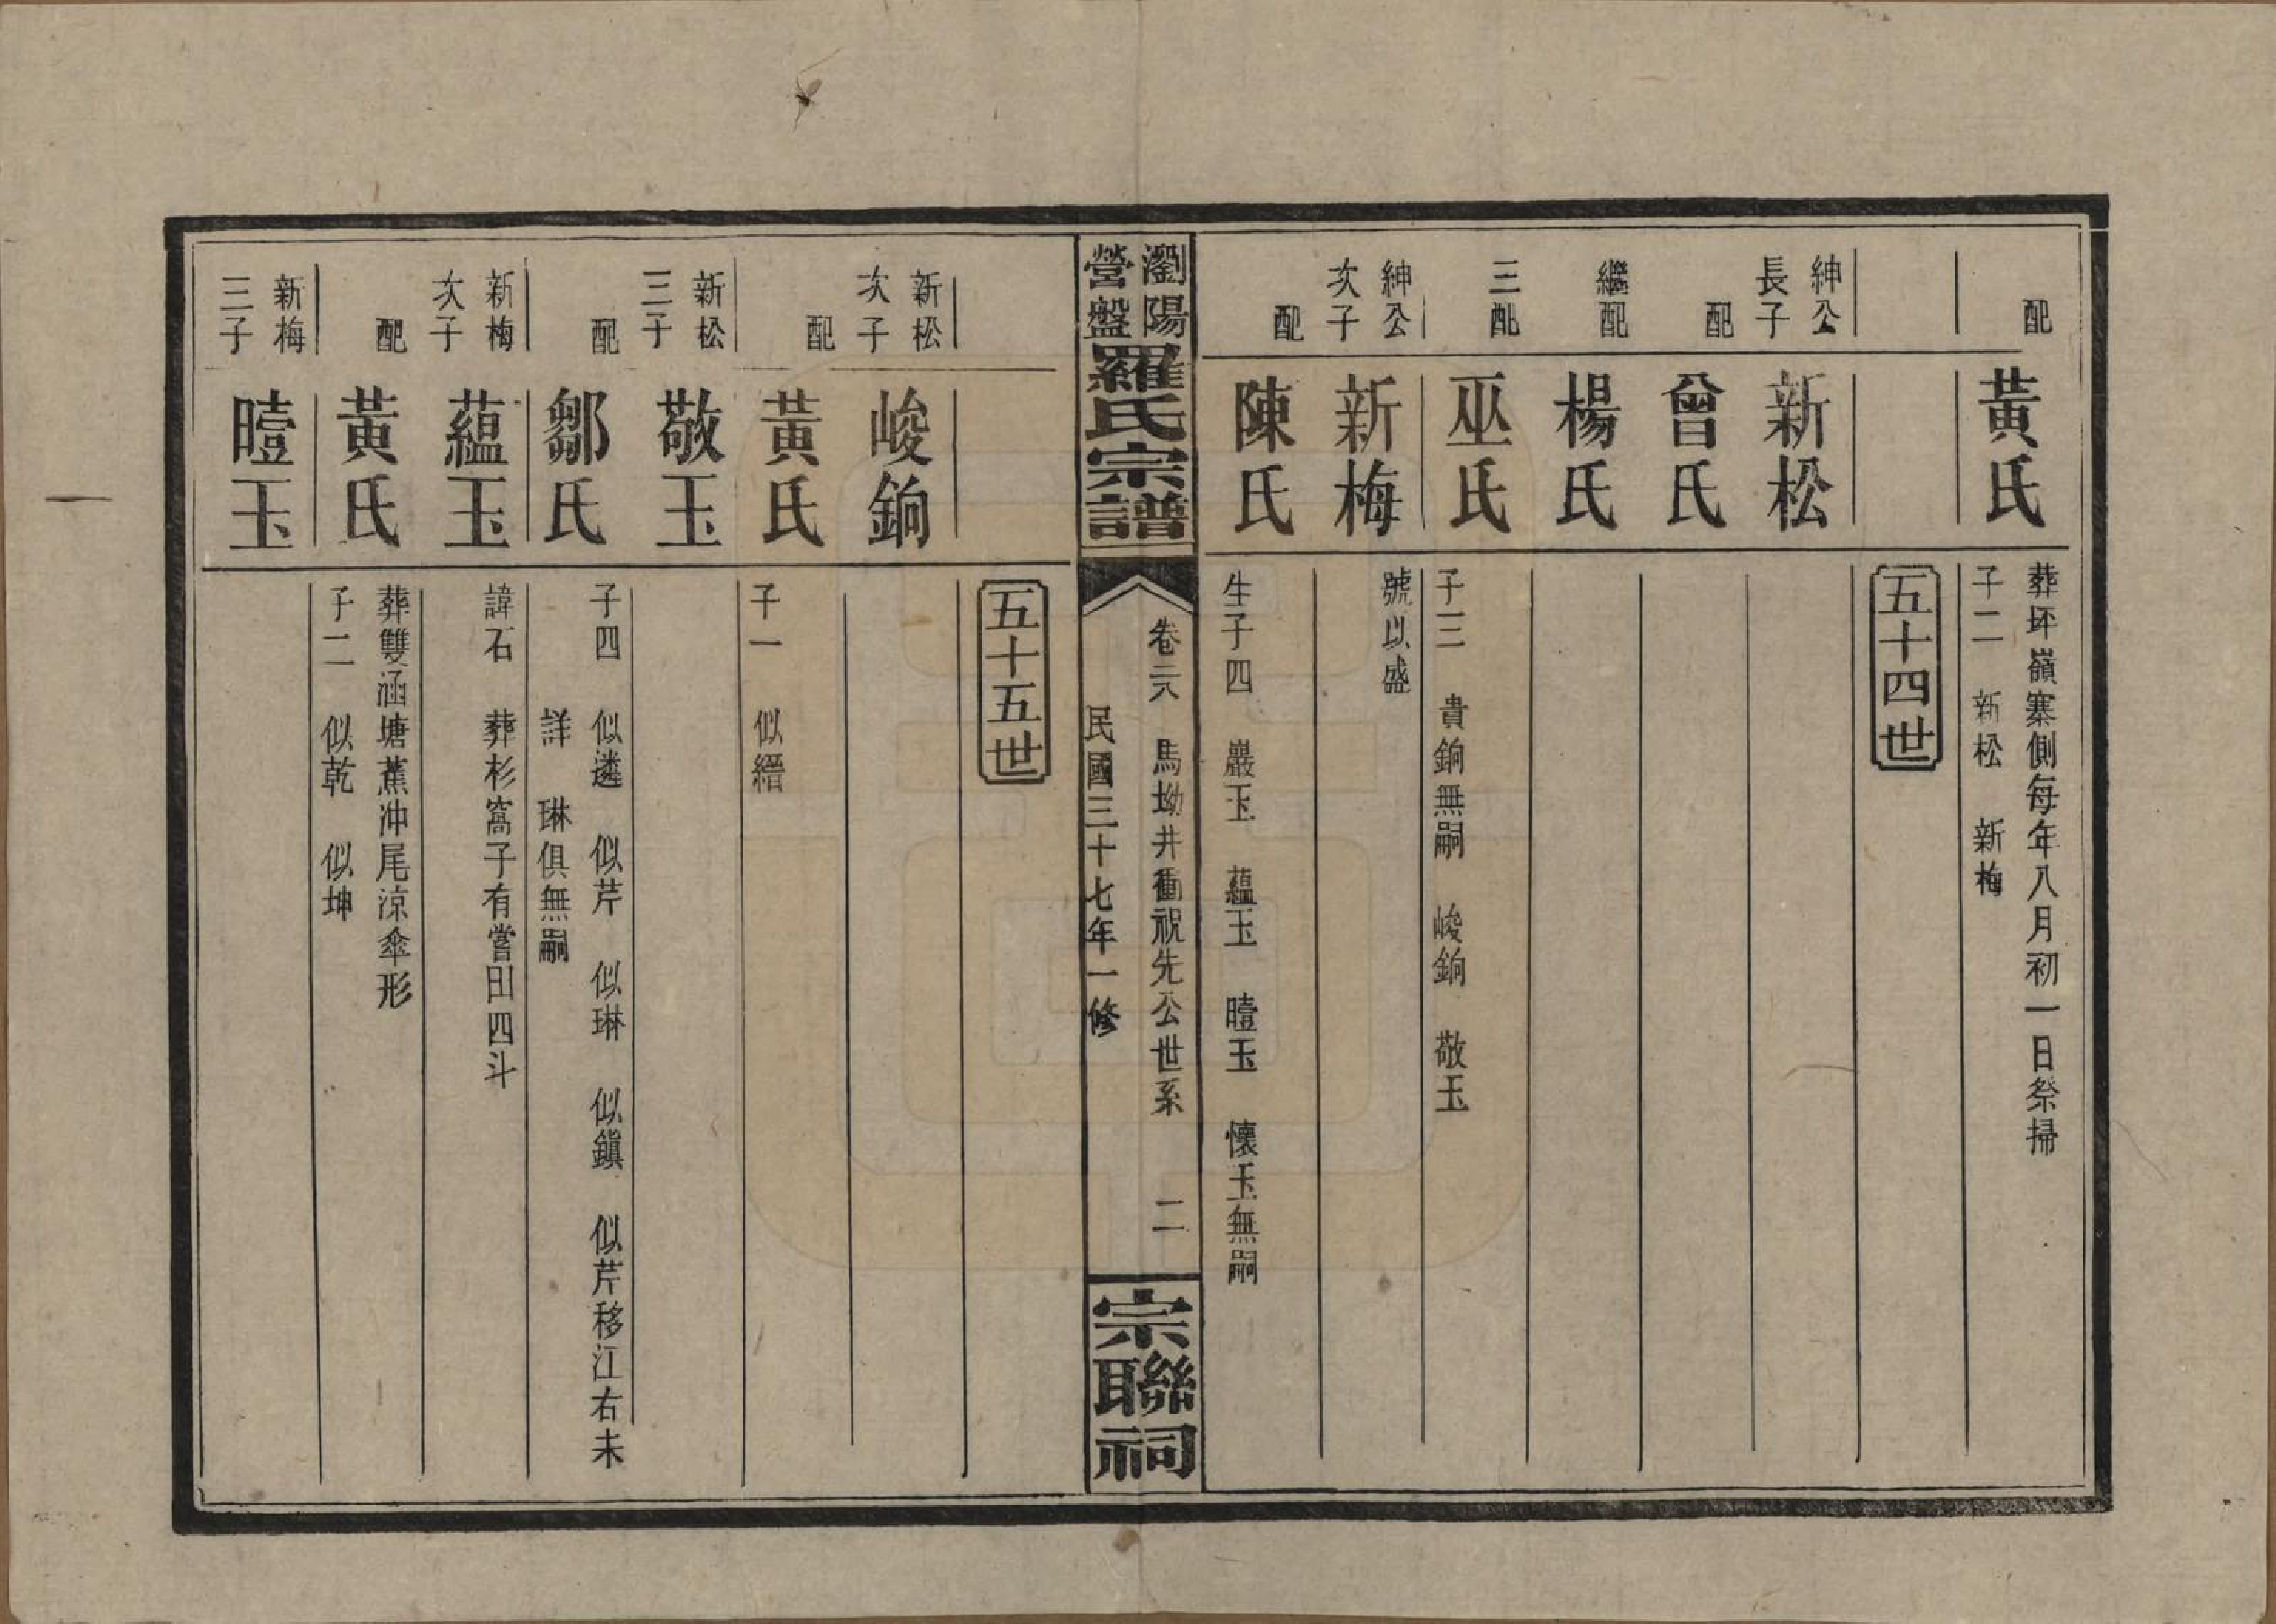 配
黃氏
葬坏嶺寨側每年八月初一日祭掃
子二　新松　新梅
五十四世
紳公
長子
新松
配
曾氏
繼配
楊氏
三配
巫氏
子三　貴銄無嗣　峻銄　敬玉
紳公
次子
新梅
號以盛
配
陳氏
生子四　巖玉　蘊玉　曀玉　懷玉無嗣
瀏陽
營盤
羅氏宗譜
卷二六　馬坳井衝祝先公世系　二
民國三十七年一修
宗聯祠
五十五世
新松
次子
峻銄
配
黃氏
子一　似縉
新松
三子
敬玉
配
鄒氏
子四　似遴　似芹　似琳　似鎭　似芹移江右未
詳　琳俱無嗣
新梅
次子
蘊玉
諱石　葬杉窩子有嘗田四斗
配
黃氏
葬雙涵塘蕉冲尾涼傘形
子二　似乾　似坤
新梅
三子
曀玉